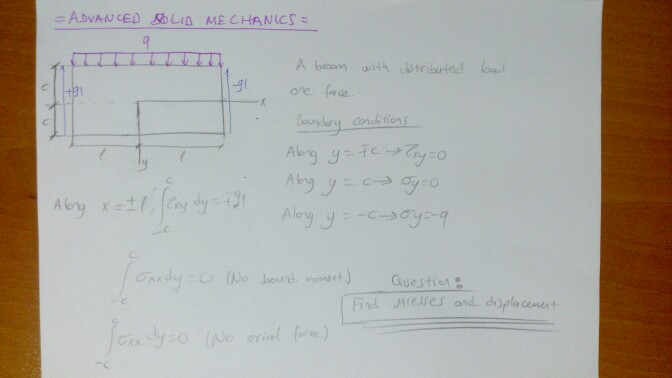 = ADVANCED SOLID MECHANICS =
q
c
+ql
-ql
x
c
l
l
y
A beam with distributed load
one face.
Boundary conditions
Along y = ∓c → τxy = 0
Along y = c → σy = 0
Along y = -c → σy = -q
Along x = ±l, ∫_{-c}^{c} τxy dy = ∓ql
∫_{-c}^{c} σxx dy = 0 (No bound moment)
∫_{-c}^{c} σxx dy = 0 (No axial force)
Question:
Find stresses and displacement